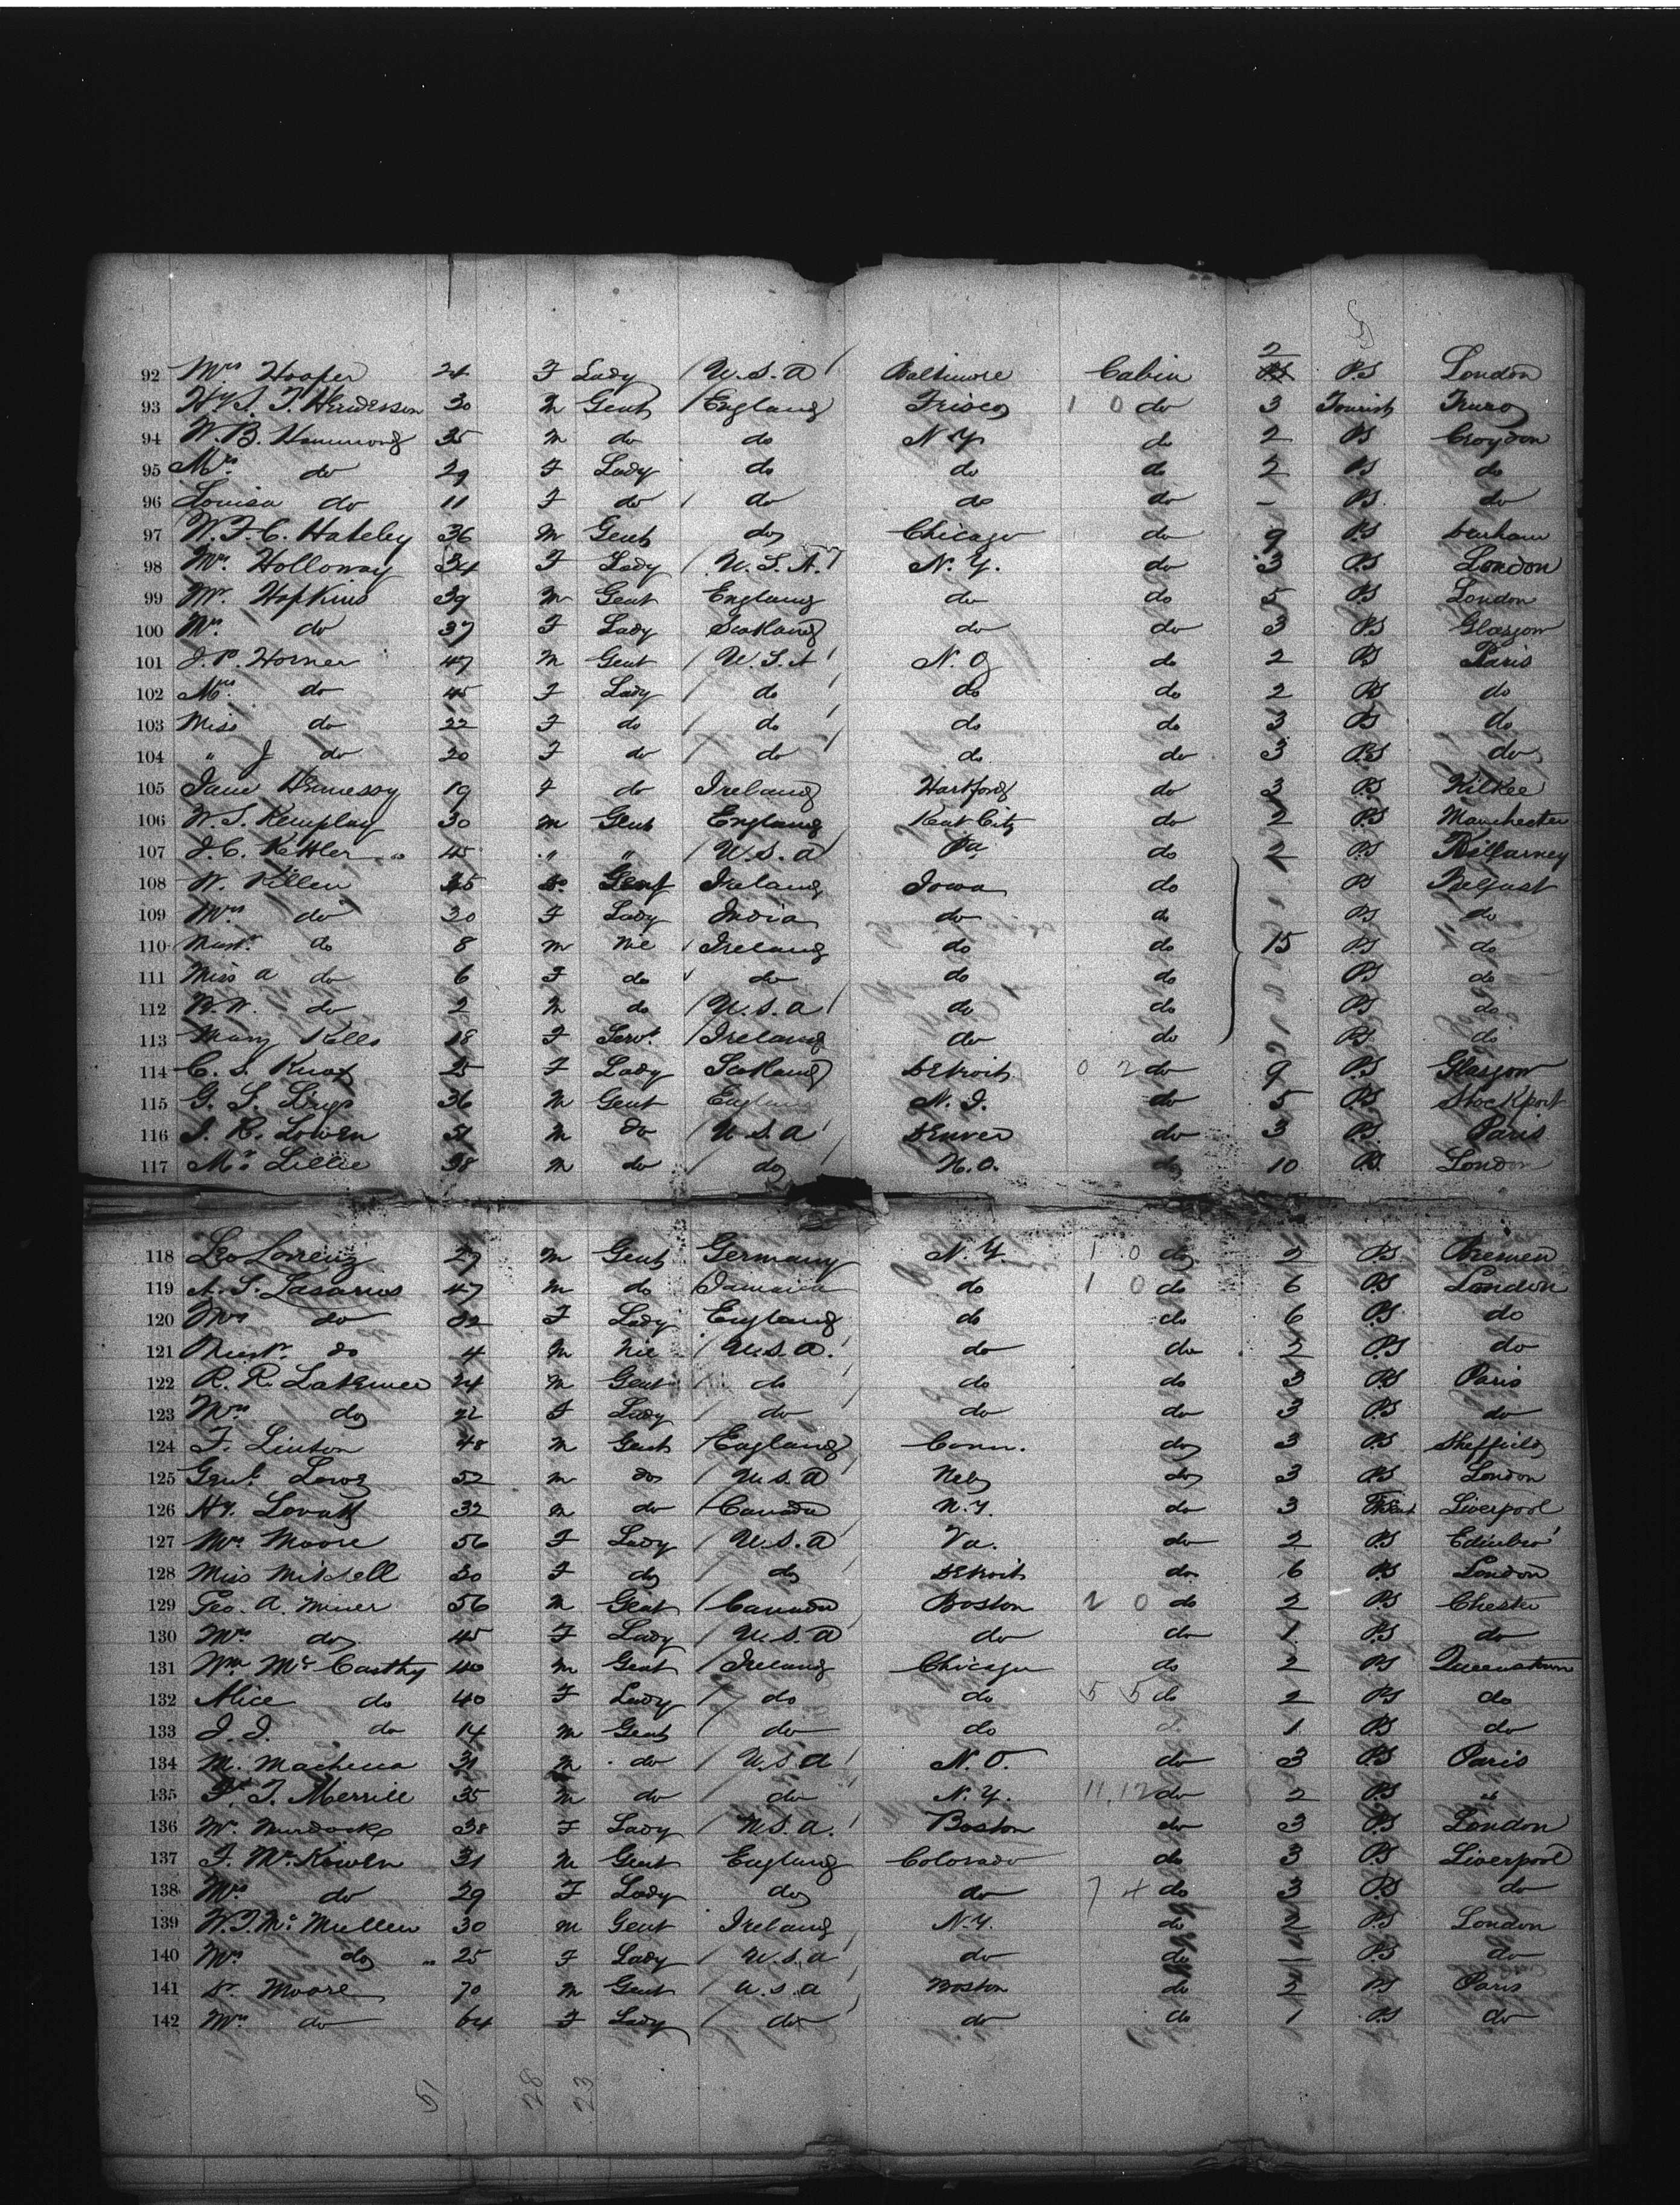 S
2
92 Mrs Hooper 24 F Lady / U.S.A / Baltimore Cabin P.S London
93 Hy S. T. Henderson 30 M Gent / England Frisco 1 0 do 3 Tourist Truro
94 W. B. Hammond 35 M do do N.Y. do 2 P.S Croydon
95 Mrs. do 29 F Lady do do do 2 P.S do
96 Louisa do 11 F do do do do – P.S. do
97 W. F. C. Hateley 36 M Gent do Chicago do 9 P.S Durham
98 Mrs. Holloway 34 F Lady / U.S.A. N.Y. do 3 P.S London
99 Mr. Hopkins 39 M Gent England do do 5 P.S London
100 Mrs. do 37 F Lady Scotland do do 3 P.S Glasgow
101 J. P. Horner 47 M Gent / U.S.A / N.O do 2 P.S Paris
102 Mrs. do 45 F Lady / do / do do 2 P.S do
103 Miss do 22 F do / do / do do 3 P.S do
104 " J do 20 F do / do / do do 3 P.S do
105 Jane Hennessy 19 F do Ireland Hartford do 3 P.S Kilkee
106 W. S. Kemplay 30 M Gent England Kent City do 2 P.S Manchester
107 J. C. Kettler 45 " " / U.S.A Pa do 2 P.S Killarney
108 W. Killen 45 do Gent Ireland Iowa do P.S Belfast
109 Mrs do 30 F Lady India do do P.S do
110 Mast. do 8 M Nil Ireland do do 15 P.S do
111 Miss A do 6 F do do do do P.S do
112 W. W. do 2 M do / U.S.A / do do P.S do
113 Mary Kells 18 F Serv. / Ireland do do P.S do
114 C. S. Knox 25 F Lady Scotland Detroit 0 2 do 9 P.S Glasgow
115 G. S. Lings 36 M Gent England N.J. do 5 P.S Stockport
116 J. R. Lowen 51 M do / U.S.A / Denver do 3 P.S Paris
117 Mr. Lillie 38 M do / do / N.O. do 10 P.S. London
118 Leo Lorenz 27 M Gent Germany N.Y. 1 0 do 2 P.S Bremen
119 A. S. Lasarus 47 M do Jamaica do 1 0 do 6 P.S London
120 Mrs do 32 F Lady England do do 6 P.S do
121 Mast. do 4 M Nil / U.S.A. / do do 2 P.S do
122 R. R. Lakemee 24 M Gent / do / do do 3 P.S Paris
123 Mrs. do 22 F Lady / do / do do 3 P.S do
124 T. Linton 48 M Gent / England Conn. do 3 P.S Sheffield
125 Genl. Lowe 52 M do / U.S.A / Neb do 3 P.S London
126 Hy. Lovatt 32 M do / Canada N.Y. do 3 Liverpool
127 Mrs Moore 56 F Lady / U.S.A / Va. do 2 P.S Edinbro'
128 Miss Mitchell 20 F do / do / Detroit do 6 P.S London
129 Geo. A. Miner 56 M Gent / Canada Boston 2 0 do 2 P.S Chester
130 Mrs do 45 F Lady / U.S.A do do 1 P.S do
131 Wm McCarthy 40 M Gent / Ireland Chicago do 2 P.S Queenstown
132 Alice do 40 F Lady / do do 5 5 do 2 P.S do
133 J. J. do 14 M Gent / do do do 1 P.S do
134 M. Macheca 31 M do / U.S.A / N.O. do 3 P.S Paris
135 F. T. Merrill 35 M do / do / N.Y. 11.12 do 2 P.S "
136 Mrs. Murdock 38 F Lady / U.S.A. / Boston do 3 P.S London
137 F. McKowen 31 M Gent England Colorado do 3 P.S Liverpool
138 Mrs. do 29 F Lady do do 7 4 do 3 P.S do
139 W. J. McMullen 30 M Gent Ireland N.Y. do 2 P.S London
140 Mrs. do 25 F Lady / U.S.A / do do 1 P.S do
141 Dr. Moore 70 M Gent / U.S.A / Boston do 2 P.S Paris
142 Mrs do 64 F Lady / do / do do 1 P.S do
51 28 23